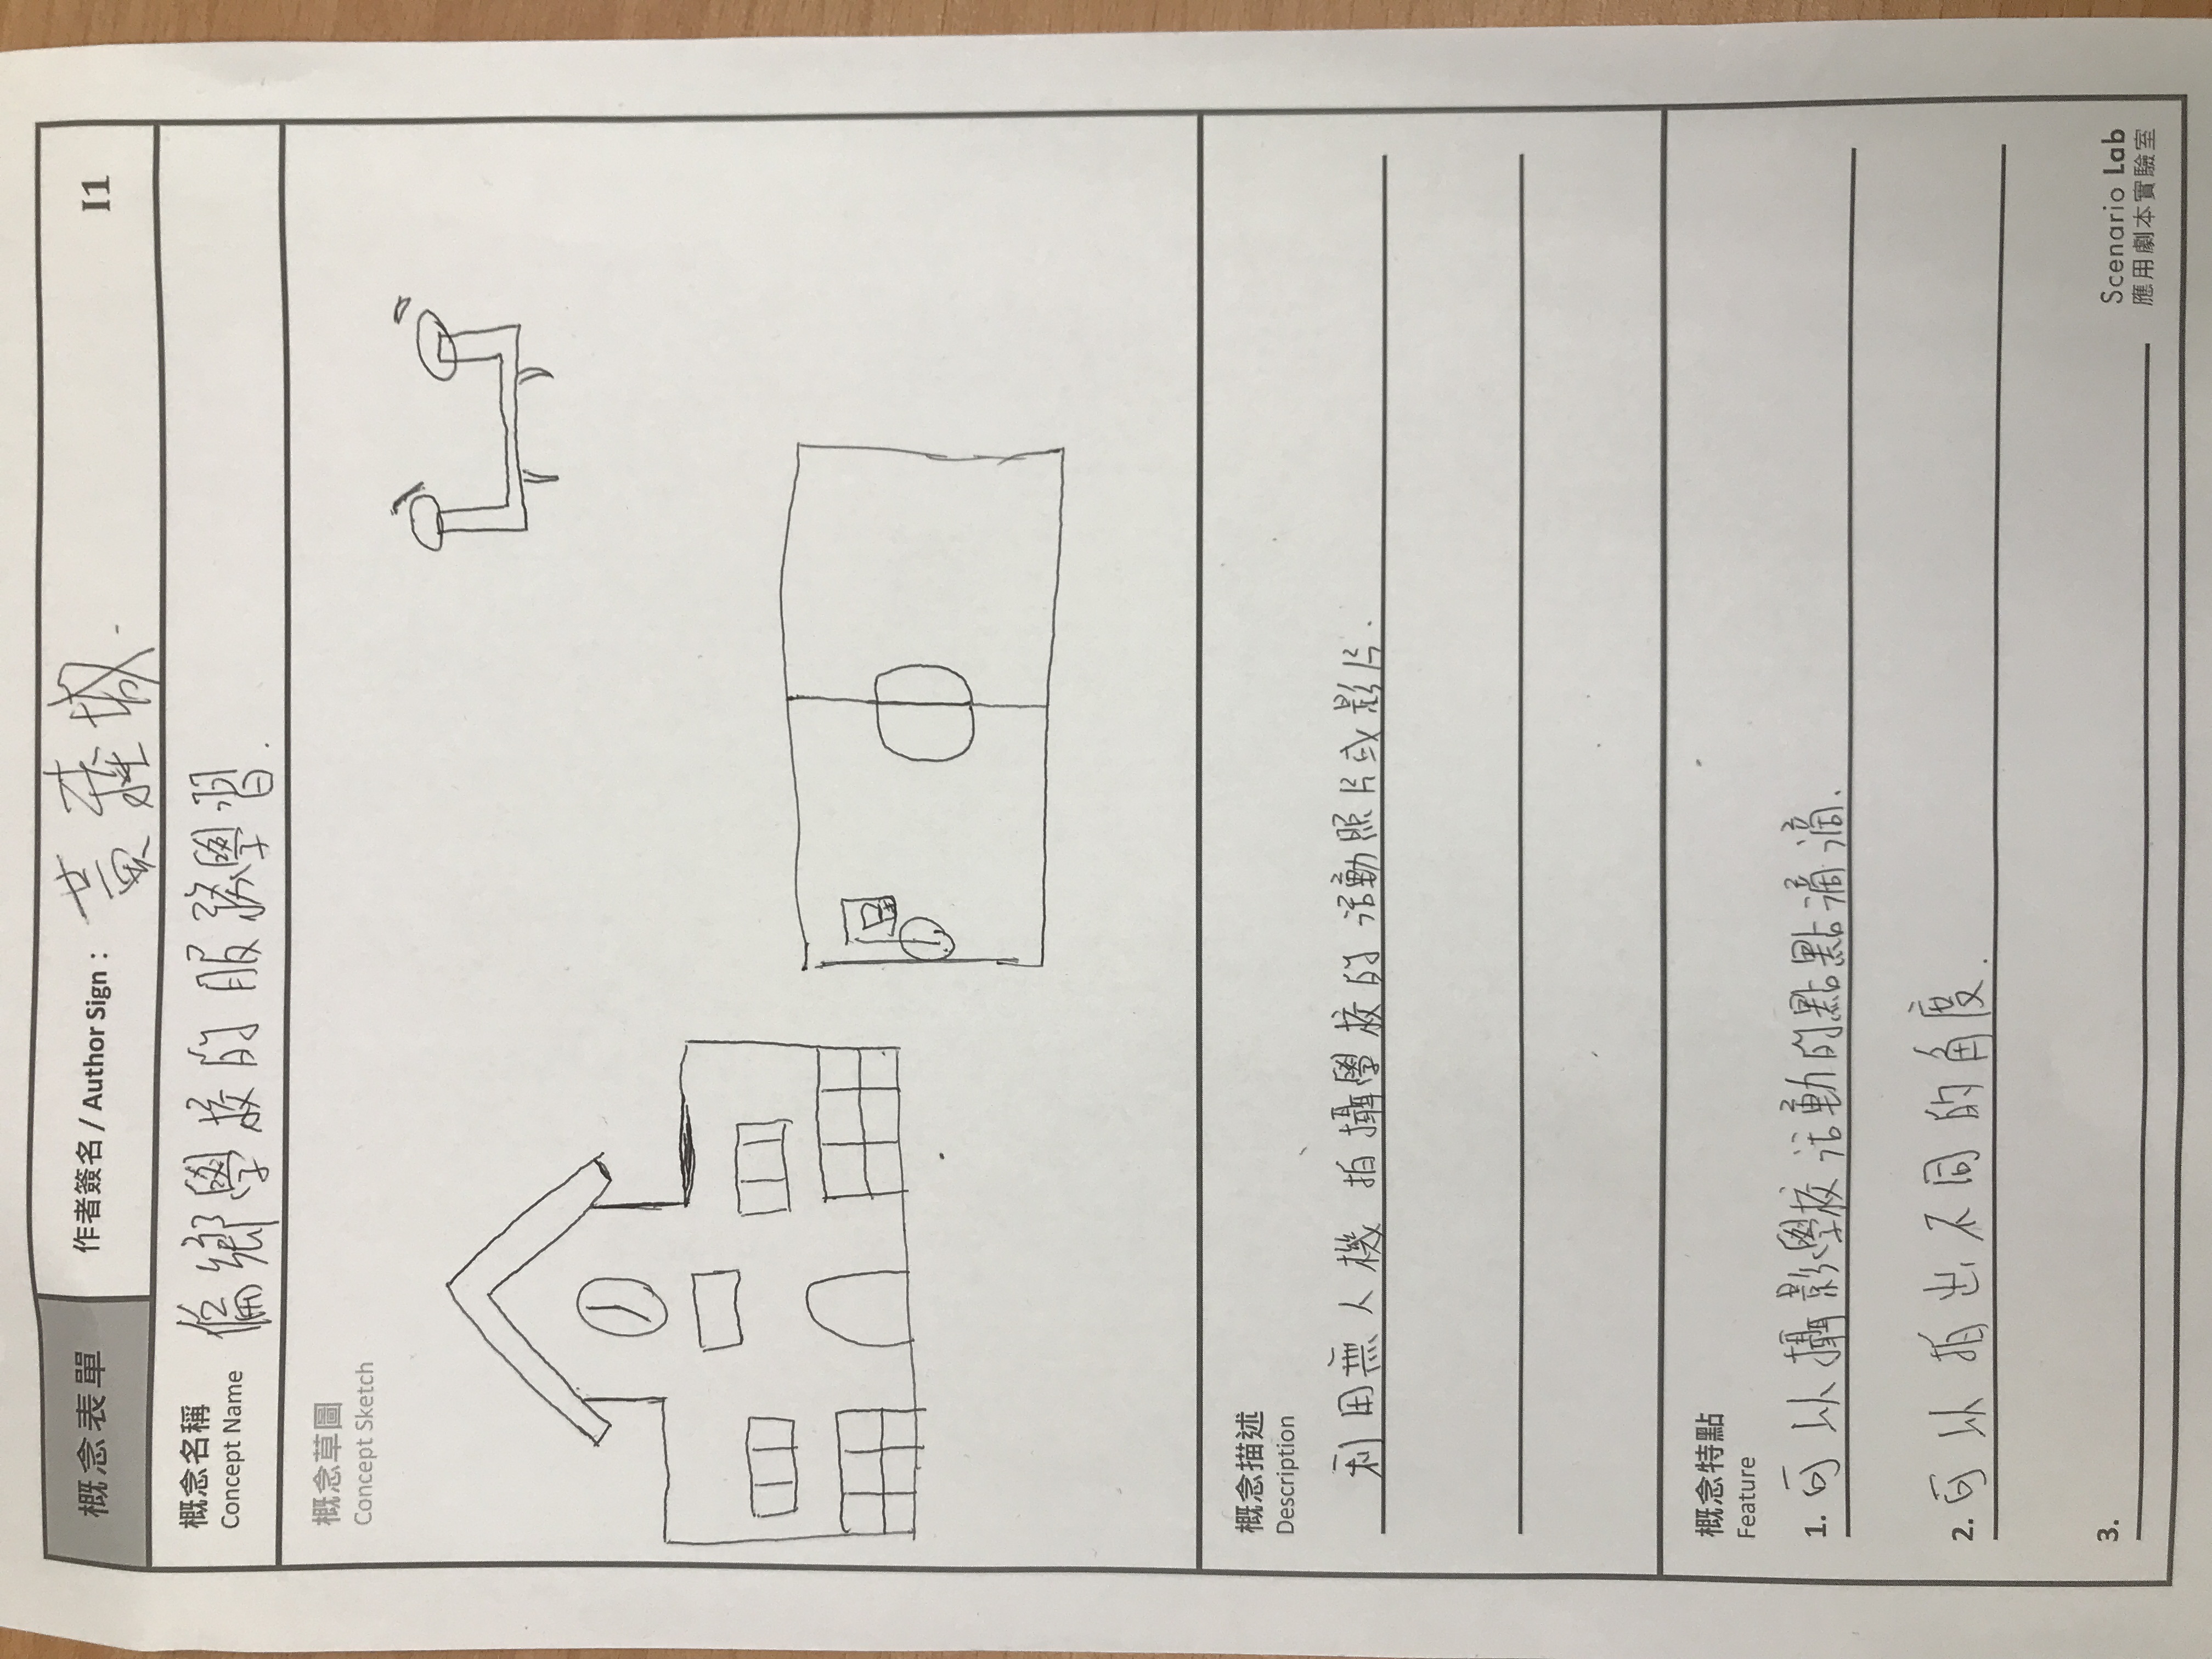 概念表單
作者簽名 / Author Sign : 黃 城.
I1
概念名稱
Concept Name
偏鄉學校的服務學習.
概念草圖
Concept Sketch
概念描述
Description
利用無人機拍攝學校的活動照片或影片.
概念特點
Feature
1. 可以攝影學校活動的點點滴滴.
2. 可以拍出不同的角度.
3.
Scenario Lab
應用劇本實驗室